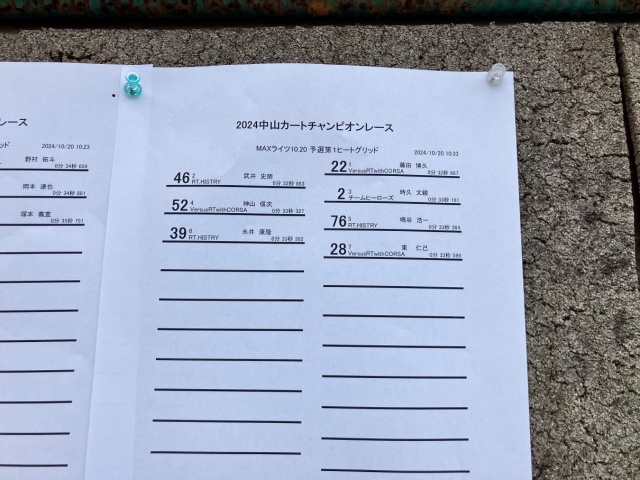 ース
ッド 2024/10/20 10:23
野村 拓斗
0分 34秒 659
岡本 達也
0分 34秒 861
塚本 義宣
0分 35秒 751
2024中山カートチャンピオンレース
MAXライツ10.20 予選第1ヒートグリッド 2024/10/20 10:23
22 1 藤田 博久
0分 32秒 667
46 2 武井 史朗
RT.HISTRY 0分 32秒 883
2 3 時久 文親
チームヒーローズ 0分 33秒 181
52 4 神山 信次
VersusRTwithCORSA 0分 33秒 327
76 5 嶋谷 浩一
RT.HISTRY 0分 33秒 384
39 6 永井 康隆
RT.HISTRY 0分 33秒
28 7 東 仁己
VersusRTwithCORSA 0分 33秒 599